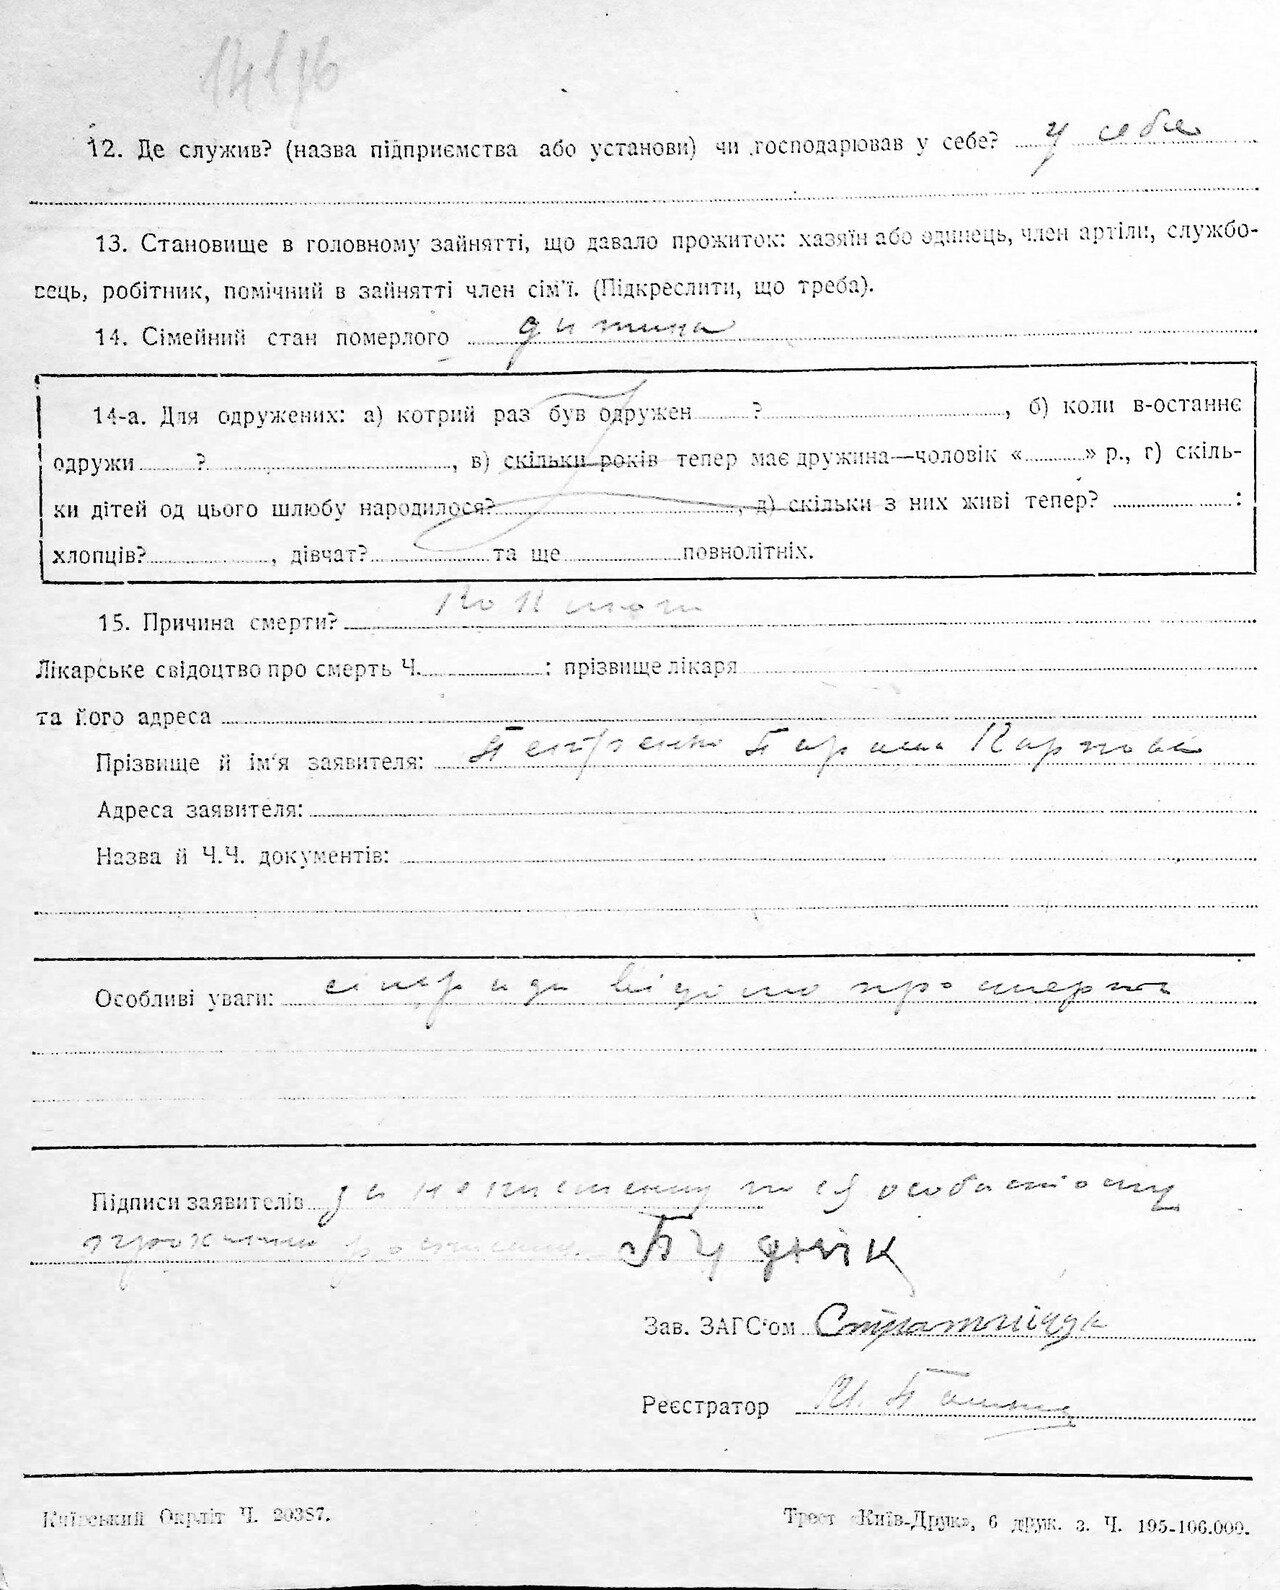 12. Де служив? (назва підприємства або установи) чи господарював у себе? у себе
13. Становище в головному зайнятті, що давало прожиток: хазяїн або одинець, член артіли, службо-
вець, робітник, помічний в зайнятті член сім'ї. (Підкреслити, що треба).
14. Сімейний стан померлого дитина
14-а. Для одружених: а) котрий раз був одружен ? , б) коли в-останнє
одружи ? , в) скільки років тепер має дружина—чоловік « » р., г) скіль-
ки дітей од цього шлюбу народилося? , д) скільки з них живі тепер? :
хлопців? , дівчат? та ще повнолітніх.
15. Причина смерти?
Лікарське свідоцтво про смерть Ч. : прізвище лікаря
та його адреса
Прізвище й ім'я заявителя: Петренко
Адреса заявителя:
Назва й Ч.Ч. документів:
Особливі уваги: про смерть
Підписи заявителів за неписьменну
Зав. ЗАГС'ом
Реєстратор
Київський Окрліт Ч. 20387.
Трест «Київ-Друк», 6 друк. з. Ч. 195-106.000.